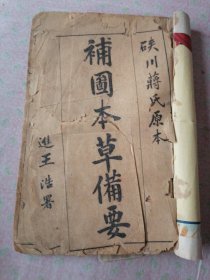 硤川蔣氏原本
補圖本草備要
王浩署